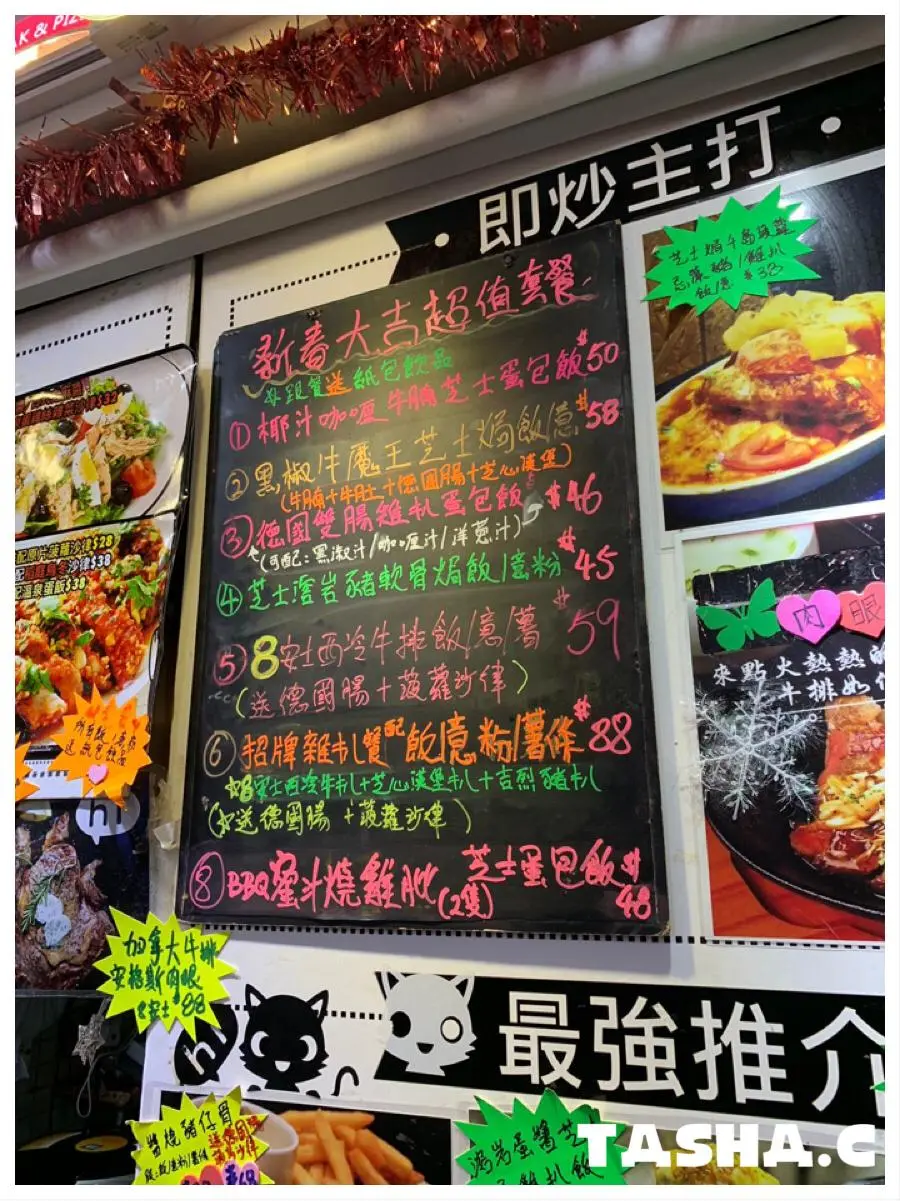 AK & PIZ
即炒主打
新春大吉超值套餐
每跟餐送 紙包飲品
① 椰汁咖喱牛腩芝士蛋包飯 $50
② 黑椒牛魔王芝士焗飯/意 $58
(牛腩+牛肚+德國腸+芝心漢堡)
③ 德國雙腸雞扒蛋包飯 $46
(可配:黑椒汁/咖喱汁/洋蔥汁)
④ 芝士溶岩豬軟骨焗飯/意粉 $45
⑤ 8安士西冷牛排飯/意/薯 $59
(送德國腸+菠蘿沙律)
⑥ 招牌雜扒餐配飯/意粉/薯條 $88
8安士西冷牛扒+芝心漢堡扒+吉烈豬扒
(送德國腸+菠蘿沙律)
⑧ BBQ蜜汁燒雞肶(2隻)芝士蛋包飯 $48
豬/雞扒
飯/意 $33
配原片菠蘿沙律$28
沙律$38
配溫泉蛋飯$38
肉 眼
來點火熱熱的
牛排如何
hi
加拿大牛排
安格斯肉眼
8安士 $88
hi
最強推介
醬燒豬仔骨
飯/意粉/薯條
$68
TASHA.C